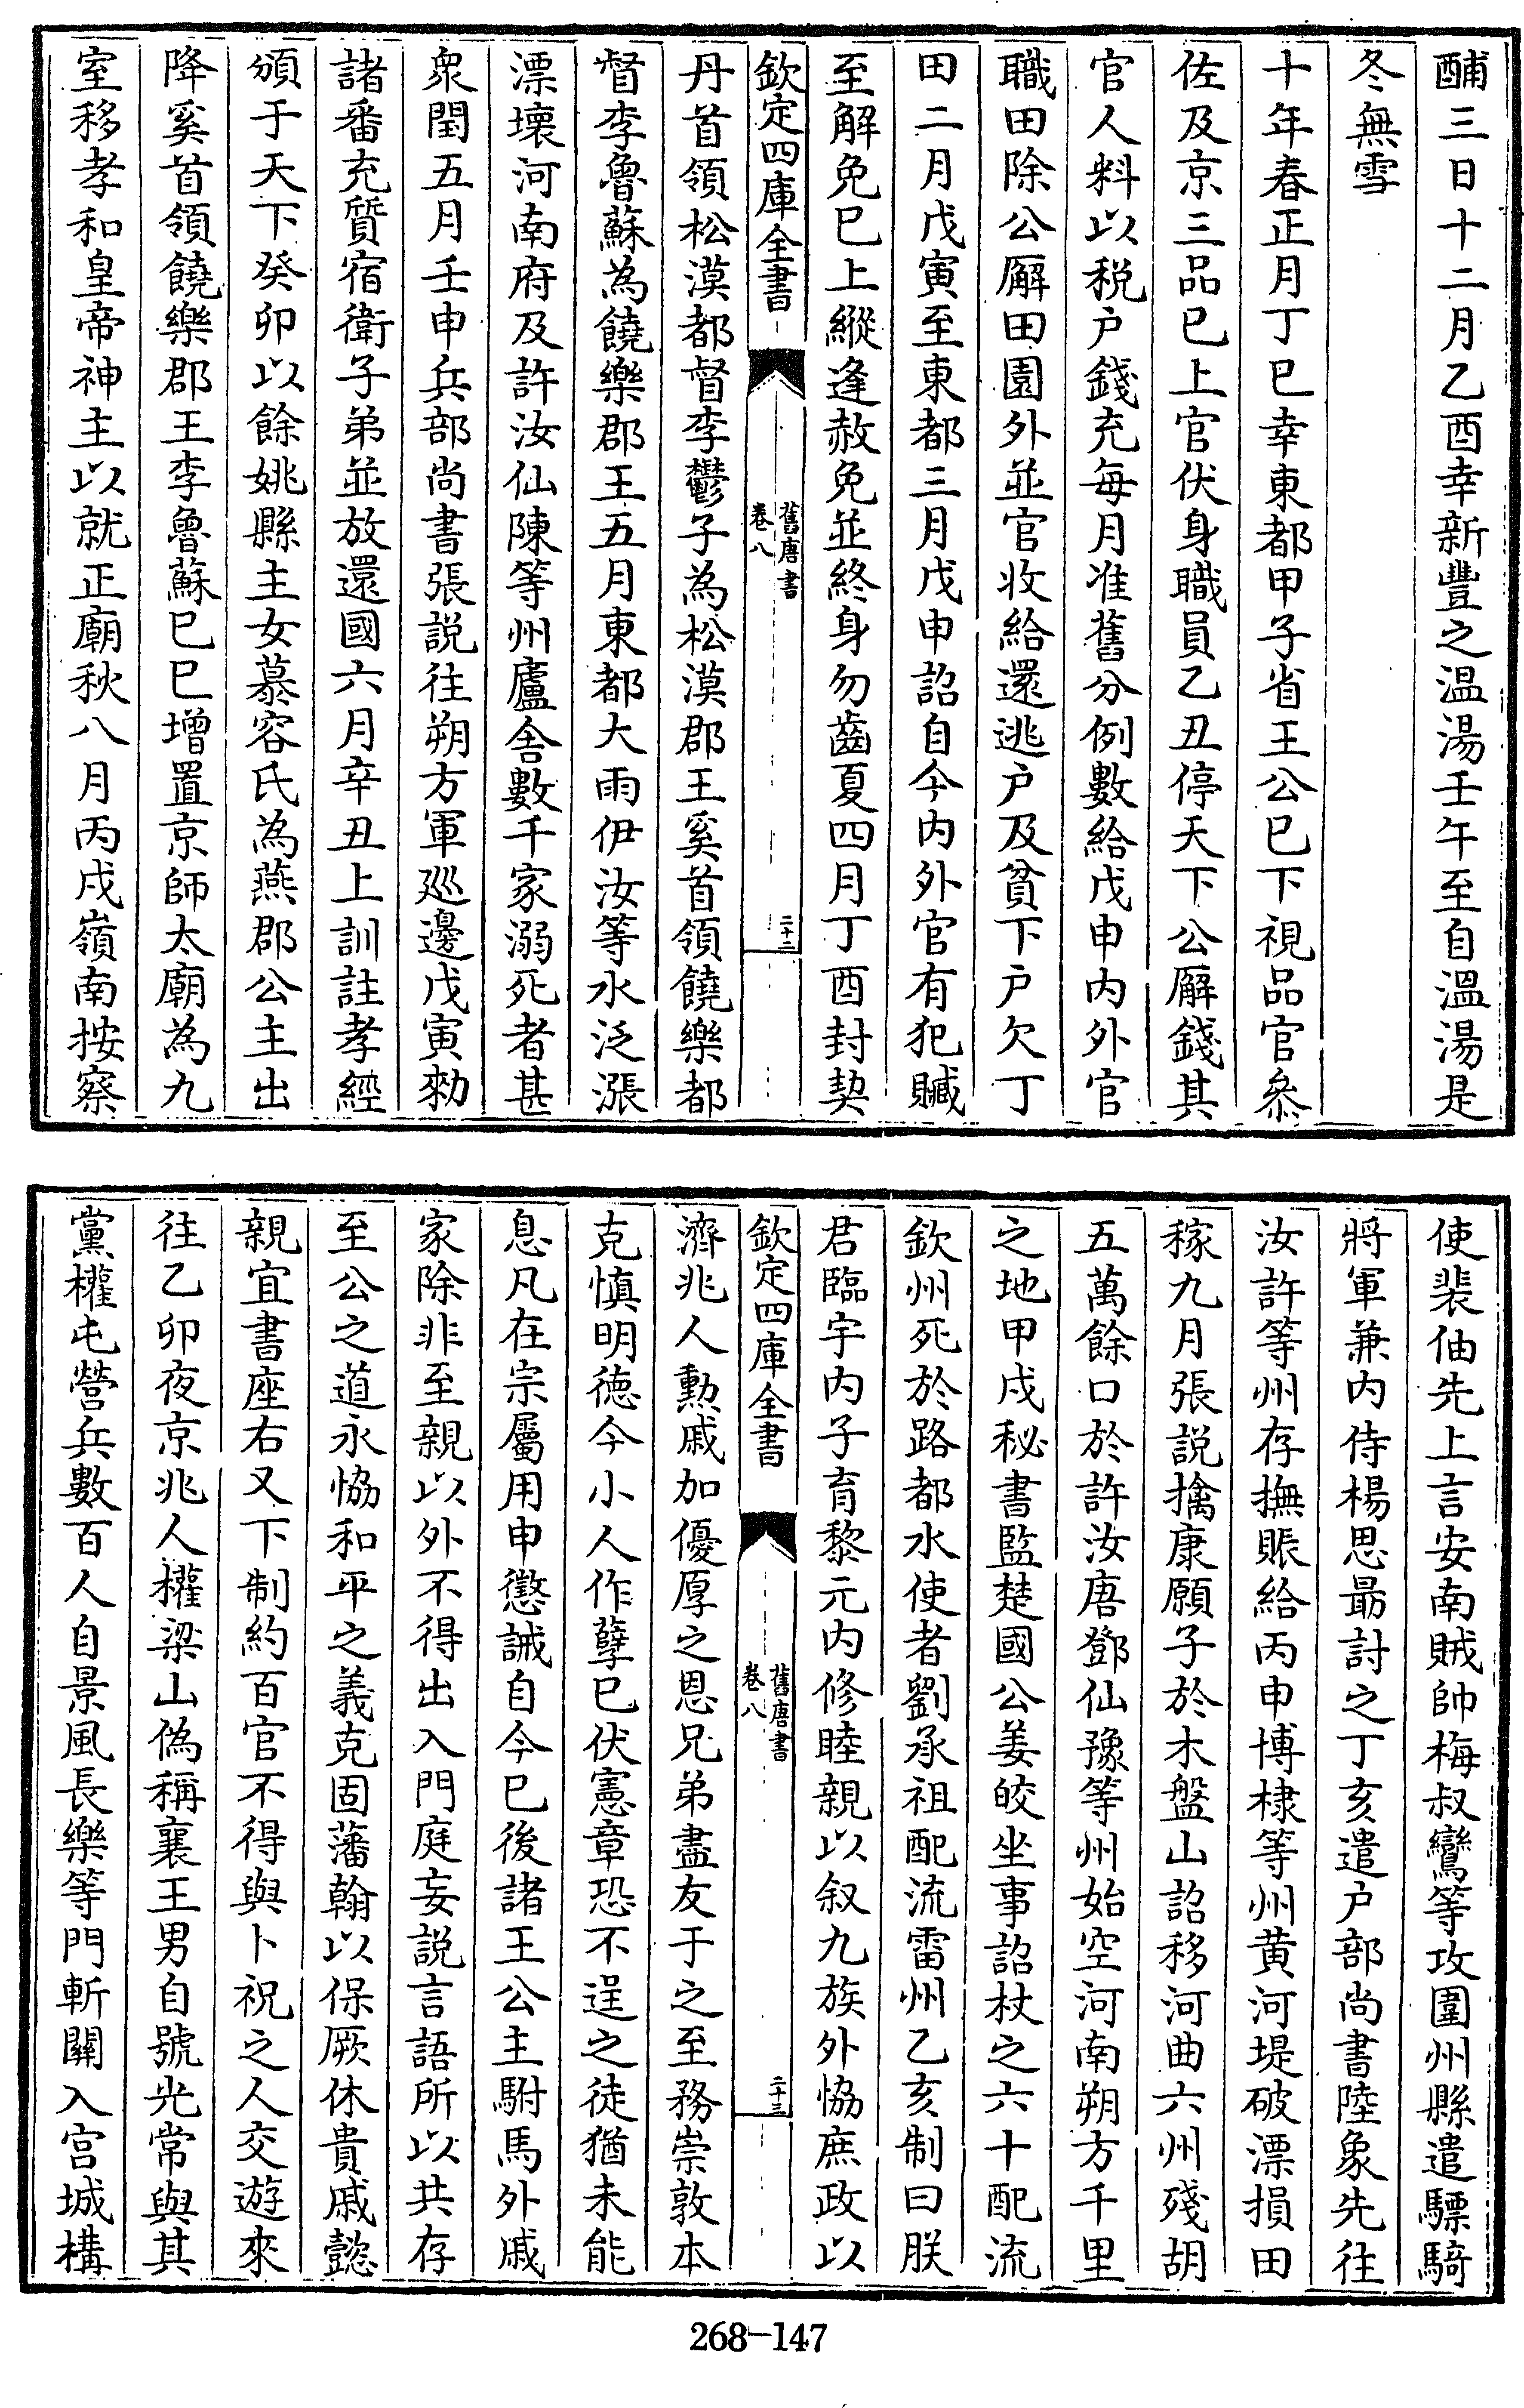 酺三日十二月乙酉幸新豐之温湯壬午至自溫湯是
冬無雪
十年春正月丁巳幸東都甲子省王公已下視品官叅
佐及京三品已上官伏身職員乙丑停天下公廨錢其
官人料以税户錢充每月准舊分例數給戊申内外官
職田除公廨田園外並官收給還逃户及貧下户欠丁
田二月戊寅至東都三月戊申詔自今内外官有犯贓
至解免已上縱逢赦免並終身勿齒夏四月丁酉封契
欽定四庫全書
舊唐書
卷八
二十二
丹首領松漠都督李鬱子為松漠郡王奚首領饒樂都
督李魯蘇為饒樂郡王五月東都大雨伊汝等水泛漲
漂壞河南府及許汝仙陳等州廬舍數千家溺死者甚
衆閏五月壬申兵部尚書張説往朔方軍廵邊戊寅勑
諸番充質宿衛子弟並放還國六月辛丑上訓註孝經
頒于天下癸卯以餘姚縣主女慕容氏為燕郡公主出
降奚首領饒樂郡王李魯蘇已巳增置京師太廟為九
室移孝和皇帝神主以就正廟秋八月丙戌嶺南按察
使裴伷先上言安南賊帥梅叔鸞等攻圍州縣遣驃騎
將軍兼内侍楊思勗討之丁亥遣户部尚書陸象先往
汝許等州存撫賑給丙申博棣等州黄河堤破漂損田
稼九月張説擒康願子於木盤山詔移河曲六州殘胡
五萬餘口於許汝唐鄧仙豫等州始空河南朔方千里
之地甲戌秘書監楚國公姜皎坐事詔杖之六十配流
欽州死於路都水使者劉承祖配流雷州乙亥制曰朕
君臨宇内子育黎元内修睦親以叙九族外恊庶政以
欽定四庫全書
舊唐書
卷八
二十三
濟兆人勳戚加優厚之恩兄弟盡友于之至務崇敦本
克慎明德今小人作孽已伏憲章恐不逞之徒猶未能
息凡在宗屬用申懲誡自今已後諸王公主駙馬外戚
家除非至親以外不得出入門庭妄説言語所以共存
至公之道永恊和平之義克固藩翰以保厥休貴戚懿
親宜書座右又下制約百官不得與卜祝之人交遊來
往乙卯夜京兆人權梁山偽稱襄王男自號光常與其
黨權屯營兵數百人自景風長樂等門斬關入宫城構
268-147